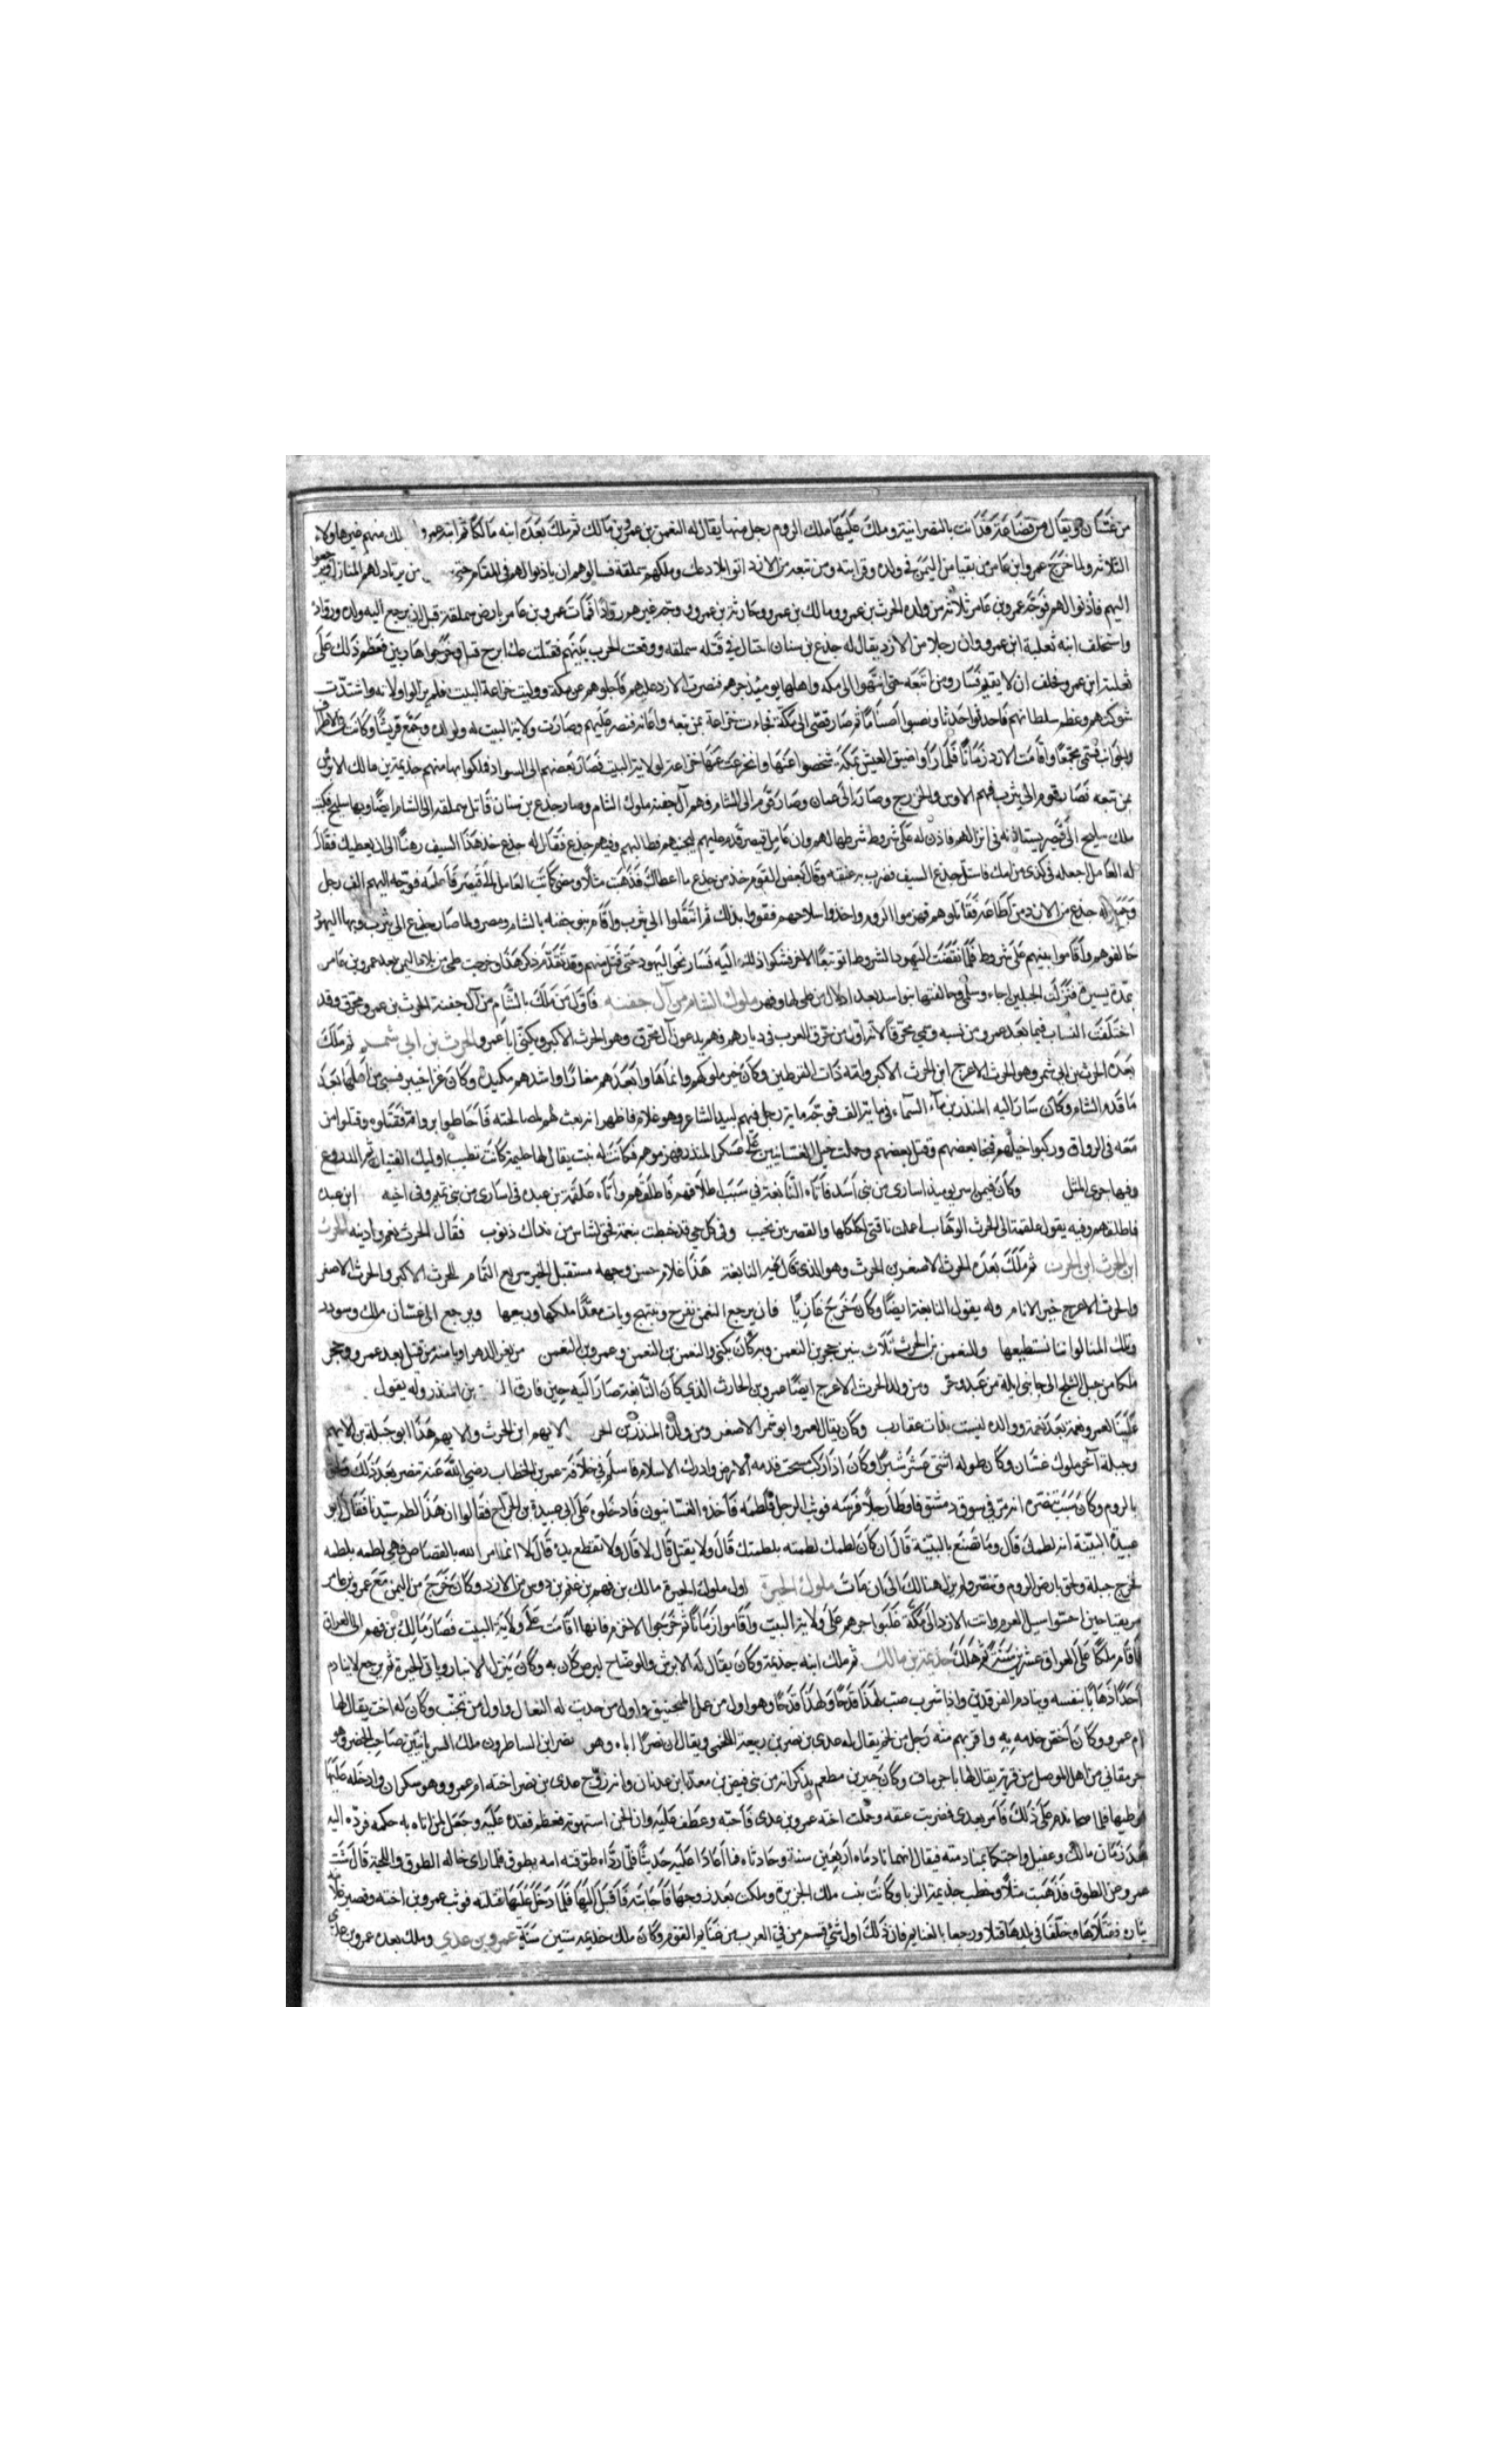 من غسّان ويقال من قضاعة قد دانت بالنصرانية وملك عليها ملك الروم رجل منها يقال له النعمن بن عمرو بن مالك ثم ملك بعده ابنه مالك ثم ابنه عمرو لك منهم غير هاولاء
الثلاثة ولما خرج عمرو ابن عامر مزيقيا من اليمن في ولده وقرابته ومن تبعه من الازد اتوا بلاد عك وملكهم سملقة فسالوهم ان ياذنوا لهم في المقام حتى من يرتاد لهم المنازل
اليهم فأذنوا لهم فوجّه عمرو بن عامر ثلاثة من ولده الحرث بن عمرو ومالك بن عمرو وحارثة بن عمرو ووجّه غيرهم روّادًا فمات عمرو بن عامر بارض سملقة قبل ان يرجع اليه ولده وروّاده
واستخلف ابنه ثعلبة ابن عمرو وان رجلا من الازد يقال له جذع بن سنان احتال في قتله سملقه ووقعت الحرب بينهم فقتلت عك ابرح قتل وخرجوا هاربين فعظم ذلك على
ثعلبة ابن عمرو فحلف ان لا يقيم فسار ومن اتبعه حتى انتهوا الى مكه واهلها يوميذ جرهم فنصرت الازد عليهم فاجلوهم عن مكة ووليت خزاعة البيت فلم يزالوا ولاته واشتدّت
شوكتهم وعظم سلطانهم فاحدثوا احداثا ونصبوا اصنامًا ثم صار قصّى الى مكّة فجاءت خزاعة بمن تبعه واعانه فنصر عليهم وصارت ولاية البيت له ولولده وجمع قريشًا وكانت في الاطراف
والجوانب فسُمّى مجمّعًا وأقامت الازد زمانًا فلمّا رأوا ضيق العيش بمكة شخصوا عنها وانخزعت عنها خزاعة لولاية البيت فصار بعضهم الى السواد فملكوا بها منهم جذيمة بن مالك الابرش
بمن تبعه فصار قوم الى يثرب فهم الاوس والخزرج وصار الى عمان وصار قوم الى الشام فهم آل جفنة ملوك الشام وصار جذع بن سنان قاتل سملقه الى الشام ايضًا وبها سليح فكتب
ملك سليح الى قيصر يستاذنه في انزالهم فاذن له على شروط شرطها لهم وان عامل قيصر قدم عليهم ليجبيهم فطالبهم وفيهم جذع فقال له جذع خذ هذا السيف رهنًا الى ان يعطيك فقال
له العامل اجعله في كذى من امك فاستلّ جذع السيف فضرب به عنقه وقال بعض القوم خذ من جذع ما اعطاك فذهبت مثلًا ومضى كاتب العامل الى قيصر فأعلمه فوجّه اليهم الف رجل
وجمع له جذع من الازد من اطاعه فقاتلوهم فهزموا الروم واخذوا سلاحهم فقووا بذلك ثم انتقلوا الى يثرب واقام بنو جفنه بالشام ومصر ولما صار جذع الى يثرب وبها اليهود
حالفوهم وأقاموا بينهم على شروط فلمّا نقضت اليهود الشروط اتوا تبعًا الاخر فشكوا ذلك اليه فسار نحو اليهود حتى قتل منهم وقد تقدّم ذكر هذا وخرجت طى من بلاد اليمن بعد عمرو بن عامر
بمدة يسيرة فنزلت الجبلين اجاء وسلمى وحالفتها بنوا اسد بعد اذلال من طى لها وقهر ملوك الشام من آل جفنه فاوّل من ملك بالشام من آل جفنة الحرث بن عمرو محرّق وقد
اختلفت النسّاب فيما بعد عمرو من نسبه وسمى محرّقًا لانه اوّل من حرق العرب في ديارهم فهم يدعون آل محرق وهو الحرث الاكبر ويكنى اباعمرو الحرث بن ابى شمر ثم ملك
بعده الحرث بن ابى شمر وهو الحرث الاعرج ابن الحرث الاكبر وامّه ذات القرطين وكان خير ملوكهم وابعدهم مغارًا واشدهم مكيدة وكان غزا خيبر فسبى من أهلها بعد
ما قدم الشام وكان سار اليه المنذر بن ماء السماء في ماية الف فوجّه ماية رجل فيهم لبيد الشاعر وهو غلام فاظهر انه بعث لهم لمصالحته فأحاطوا برواقه فقتلوه وقتلوا من
معه في الرواق وركبوا خيلهم فنجا بعضهم وقتل بعضهم وحملت خيل الغسّانيين على عسكر المنذر فهزموهم فكانت له بنت يقال لها حليمة كانت تطيب اوليك الفتيان ثم الدروع
وفيها جرى المثل وكان فيمن اسر يوميذ اسارى من بنى أسد فأتاه النابغة في سبب اطلاقهم فأطلقهم وأتاه علقمة بن عبده في اسارى من بنى تميم وفى اخيه ابن عبده
فاطلقهم وفيه يقول علقمة الى الحرث الوهّاب أعملت ناقتى لكلكلها والقصرين نحيب وفى كل حى قد خبطت بنعمة فحق لشاس من نداك ذنوب فقال الحرث نعم واذنبه الحرث
ابن الحرث ابن الحرث ثم ملك بعده الحرث الاصغر بن الحرث وهو الذى قال فيه النابغة هذا غلام حسن وجهه مستقبل الخير سريع التمام للحرث الاكبر والحرث الاصغر
والحرث الاعرج خير الانام وله يقول النابغة ايضًا وكان خرج غازيًا فان يرجع النعمن نفرح ونبتهج ويات معدًّا ملكها وربيعها ويرجع الى غسّان ملك وسودد
وتلك المنا لو اننا نستطيعها وللنعمن بن الحرث ثلاث بنين حجر بن النعمن وبه كان يكنى والنعمن بن النعمن وعمرو بن النعمن من يغر الدهر او يامنه من قتيل بعد عمرو وحجر
ملكا من جبل الثلج الى جانبى ايلة من عبد وحر ومن ولد الحرث الاعرج ايضًا عمرو بن الحارث الذي كان النابغة صار اليه حين فارق النـ بن المنذر وله يقول
علينا لعمرو نعمة بعد نعمة ووالده ليست بذات عقارب وكان يقال لعمرو ابو شمر الاصغر ومن ولده المنذر بن الحر الايهم ابن الحرث والايهم هذا ابو جبلة بن الايهم
وجبلة آخر ملوك غسّان وكان طوله اثنى عشر شبرًا وكان اذا ركب سحت قدمه الارض وادرك الاسلام فاسلم في خلافة عمر بن الخطاب رضى الله عنه ثم تنصر بعد ذلك ولحق
بالروم وكان سبب تنصّره انه مرّ في سوق دمشق فاوطأ رجلًا فرسه فوثب الرجل فلطمه فأخذه الغسّانيون فادخلوه على ابى عبيدة بن الجرّاح فقالوا ان هذا لطم سيّدنا فقال ابو
عبيدة البيّنة انه لطمك قال وما تصنع بالبيّنة قال ان كان لطمك لطمته بلطمتك قال ولا يقتل قال لا قال ولا تقطع يده قال لا انما امر الله بالقصاص فهى لطمه بلطمه
فخرج جبلة ولحق بارض الروم وتنصّر ولم يزل هنالك الى ان مات ملوك الحيرة اول ملوك الحيرة مالك بن فهم بن غنم بن دوس من الازد وكان خرج من اليمن مع عمرو بن عامر
مزيقيا حين احسّوا سيل العرم واتت الازد الى مكّة غلبوا جرهم على ولاية البيت وأقاموا زمانًا ثم خرجوا الا خزاعة فانها اقامت على ولاية البيت فصار مالك بن فهم الى العراق
فأقام ملكًا على العراق عشرين سنة ثم هلك جذيمة بن مالك ثم ملك ابنه جذيمة وكان يقال له الابرش والوضّاح لبرص كان به وكان ينزل الانبار وياتى الحيرة ثم يرجع لا ينادم
أحدًا ذهابًا بنفسه وينادم الفرقدين واذا شرب صبّ لهذا قدحًا ولهذا قدحًا وهو اول من عمل المنجنيق واول من حذيت له النعال واول من وكان له اخت يقال لها
ام عمرو وكان أخصّ خدمه به واقربهم منه رجل من لخم يقال له عدى بن نصر بن ربيعة اللخمى ويقال ان نصرًا اباه وهو نصر ابن الساطرون ملك السريانيّين صاحب الحضر وهو
جرمقاني من اهل الموصل من قرية يقال لها باجرمى وكان جبير بن مطعم يذكر انه من بنى قنص بن معدّ ابن عدنان وانه زوّج عدى بن نصر اخته ام عمرو وهو سكران وادخله عليها
فوطيها فلما صحا ندم على ذلك فأمر بعدى فضربت عنقه وحملت اخته عمرو بن عدى فأحبّه وعطف عليه وان الجن استهوته فعظم فقده عليه وجعل لمن اتاه به حكمه فردّه اليه
بعد زمان مالك وعقيل واحتكما بمنادمته فيقال انهما نادماه أربعين سنة وحادثاه فما أعادا عليه حديثًا فلمّا ردّاه طوّقته امه بطوق فلما راى خاله الطوق واللحية قال شبّ
عمرو عن الطوق فذهبت مثلًا وخطب جذيمة الزبا وكانت بنت ملك الجزيرة وملكت بعد زوجها فأجابته فأقبل اليها فلمّا دخل عليها قتلته فوثب عمرو بن اخته وقصير غلامه
بثاره فقتلاها وخلّفا في بلدها قتلا ورجعا بالغنايم فان ذلك اول شئ قسم من فيء العرب من غنايم القوم وكان ملك جذيمه ستين سنة عمرو بن عدي وملك بعده عمرو بن عدى